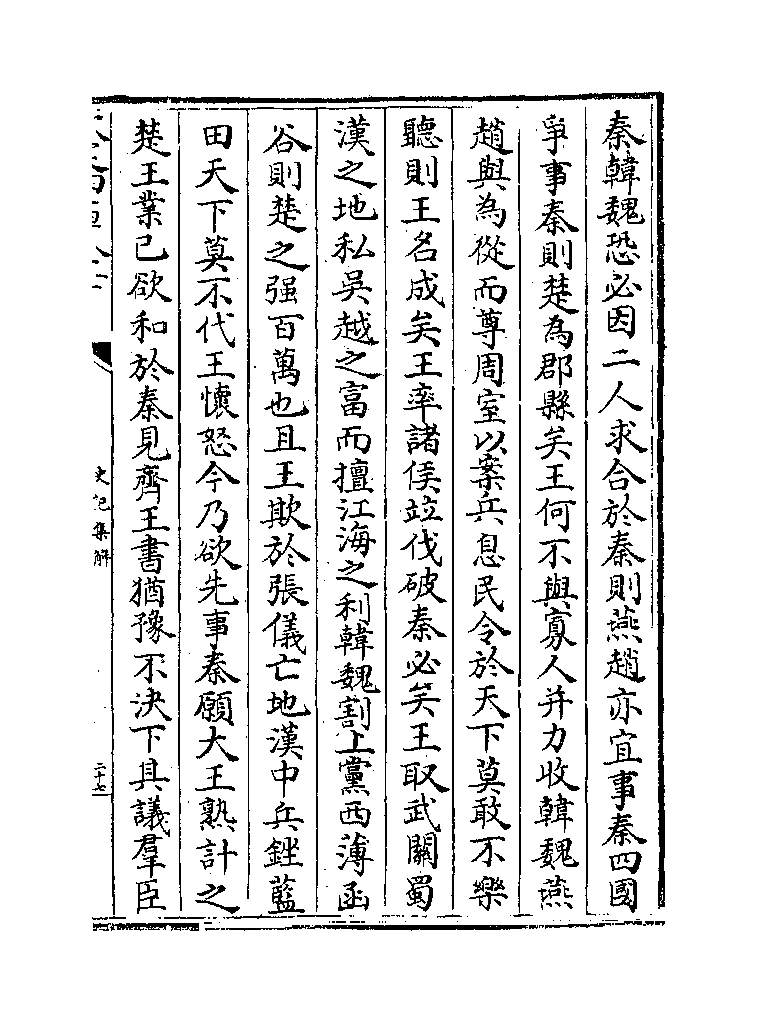 秦韓魏恐必因二人求合於秦則燕趙亦宜事秦四國
爭事秦則楚為郡縣矣王何不與寡人并力收韓魏燕
趙與為從而尊周室以案兵息民令於天下莫敢不樂
聽則王名成矣王率諸侯竝伐破秦必矣王取武關蜀
漢之地私吳越之富而擅江海之利韓魏割上黨西薄函
谷則楚之强百萬也且王欺於張儀亡地漢中兵銼藍
田天下莫不代王懷怒今乃欲先事秦願大王熟計之
楚王業已欲和於秦見齊王書猶豫不決下其議羣臣
史記集解
二十七